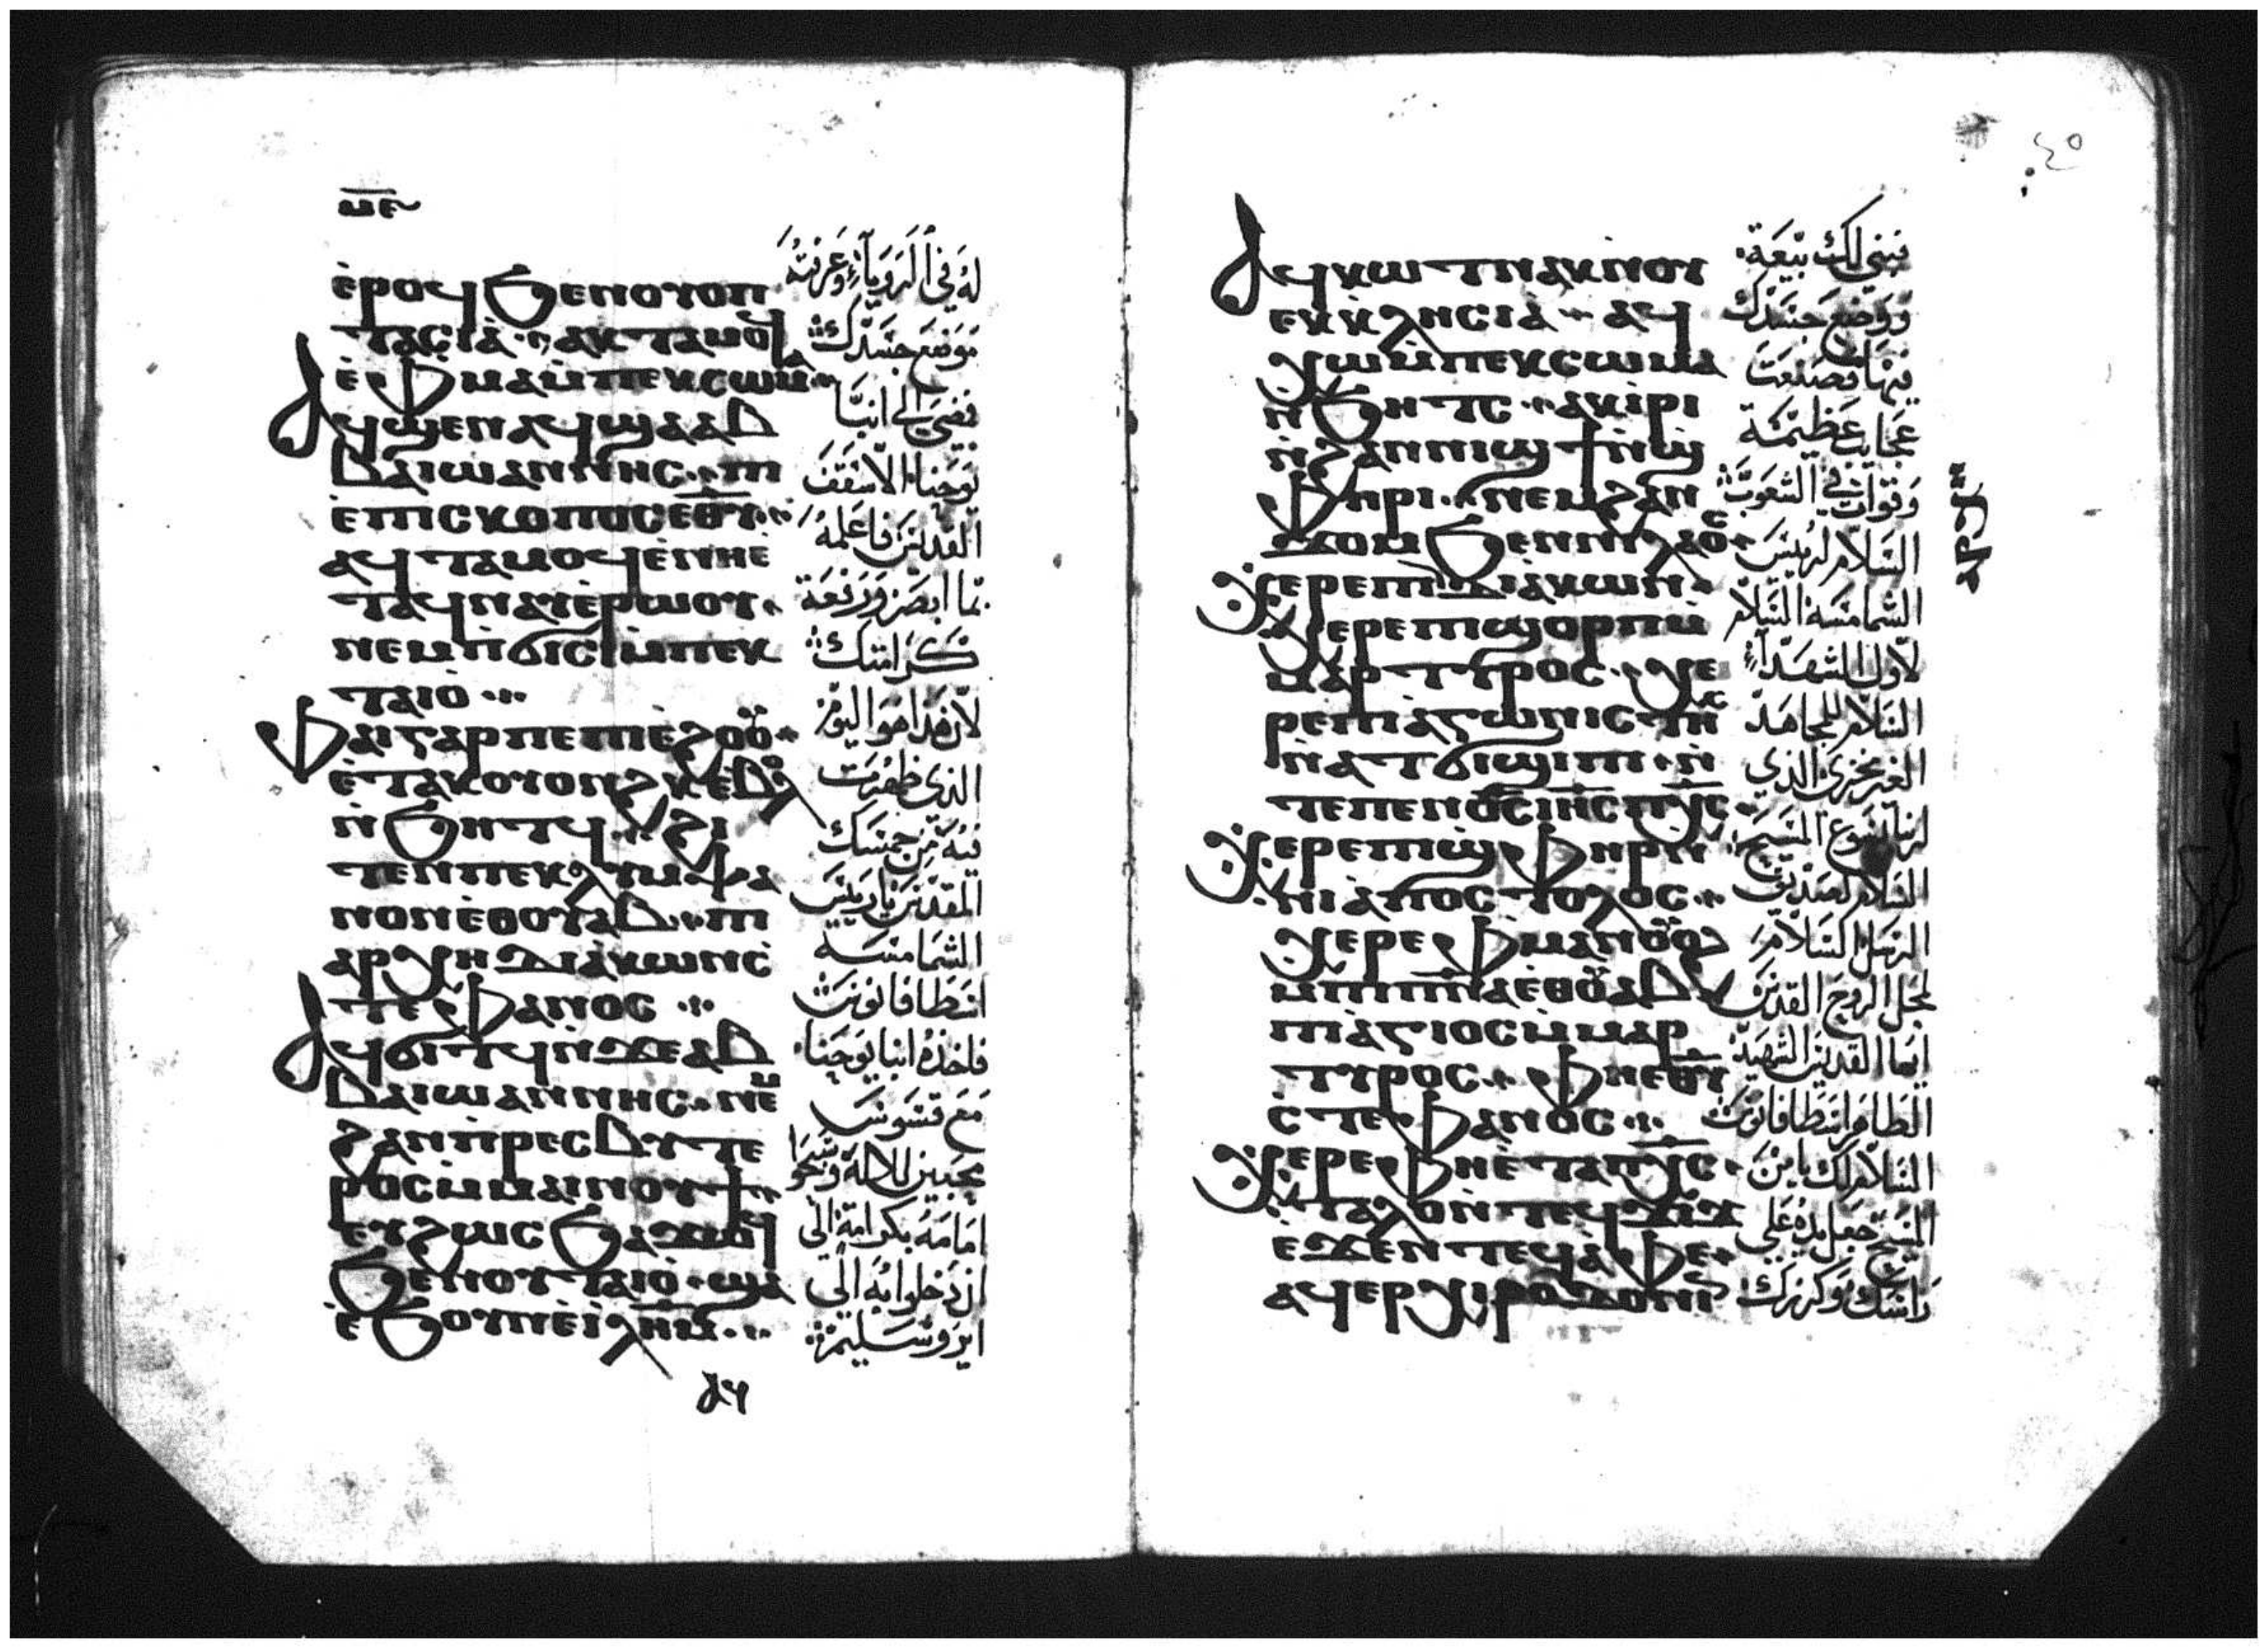 ⲙⲉ
ⲉ̀ⲣⲟϥ ϧⲉⲛⲟⲩⲟⲡ
ⲧⲁⲥⲓⲁ̀ ⲁⲕⲧⲁⲙⲟϥ
ⲉ̀ⲫⲙⲁⲙ̀ⲡⲉⲕⲥⲱⲙⲁ
ⲁϥϣⲉⲛⲁϥ ϣⲁⲁⲃ
ⲃⲁ ⲓⲱⲁⲛⲛⲏⲥ ⲡⲓ
ⲉ̀ⲡⲓⲥⲕⲟⲡⲟⲥ ⲉⲑⲩ
ⲁϥⲧⲁⲙⲟϥ ⲉ̀ⲛⲏⲉ̀
ⲧⲁϥⲛⲁⲩ ⲉ̀ⲣⲱⲟⲩ
ⲛⲉⲙⲡ̀ϭⲓⲥⲓ ⲙ̀ⲡⲉⲕ
ⲧⲁⲓⲟ̀
ⲫⲁⲓ ⲅⲁⲣ ⲡⲉ ⲡⲓⲉ̀ϩⲟⲟ̈
ⲉ̀ⲧⲁⲕⲟⲩⲟⲛϩⲕ ⲉⲃⲟⲗ
ⲛ̀ϧⲏⲧϥ ϩⲓ
ⲧⲉⲛ ⲡⲉⲕⲗⲩⲙⲯⲁ
ⲛⲟⲛ ⲉ̀ⲑⲟⲩⲁⲃ ⲡⲓ
ⲁⲣⲭⲏⲇⲓⲁ̀ⲕⲱⲛ ⲥ̀
ⲧⲉⲫⲁⲛⲟⲥ
ⲁϥϭⲓⲧϥ ⲛ̀ϫⲉ ⲁⲃ
ⲃⲁ ⲓⲱⲁⲛⲛⲏⲥ ⲛⲉⲙ
ϩⲁⲛⲡ̀ⲣⲉⲥⲃⲩⲧⲉ
ⲣⲟⲥ ⲙ̀ⲙⲁⲓⲛⲟⲩϯ
ⲉⲩϩⲱⲥ ϧⲁϫⲱϥ
ϧⲉⲛⲟⲩⲧⲁⲓⲟ̀ ϣⲁ
ⲉ̀ϧⲟⲩⲛ ⲉ̀ⲓ̀ⲗⲏⲙ
ⲁϥ
له في الرويا وعرفته
موضع جسدك
فمضي الي انبا
يوحنا الاسقف
القديس فاعلمه
بما ابصر ورفعة
كرامتك
لان هذا هو اليوم
الذي ظهرت
فيه من جسدك
المقدس يا ريس
الشمامسه
اسطافانوس
فاخذه انبا يوحنا
مع قسوس
محبين للاله وسبحوا
امامه بكرامة الي
ان دخلوا به الي
ايروساليم
٤٥
ⲁϥⲕⲱⲧ ⲛⲁⲕ ⲛ̀ⲟⲩ
ⲉⲕⲕⲗⲏⲥⲓⲁ̀ ⲁϥ
ⲭⲱ ⲙ̀ⲡⲉⲕⲥⲱⲙⲁ
ⲛ̀ϧⲏⲧⲥ ⲁⲕⲓⲣⲓ
ⲛ̀ϩⲁⲛⲛⲓϣϯ ⲛ̀ϣ
ⲫⲏⲣⲓ ⲛⲉⲙ ϩⲁⲛ
ϫⲟⲙ ϧⲉⲛ ⲛⲓⲗⲁⲟⲥ
ⲭⲉⲣⲉ ⲡⲓⲇⲓⲁ̀ⲕⲱⲛ
ⲭⲉⲣⲉ ⲡⲓϣⲟⲣⲡ ⲙ̀
ⲙⲁⲣⲧⲩⲣⲟⲥ ⲭⲉ
ⲣⲉ ⲡⲓⲁ̀ⲅⲱⲛⲓⲥⲧⲏⲥ
ⲛ̀ⲁⲧϭⲓϣⲓⲡⲓ ⲛ̀
ⲧⲉ ⲡⲉⲛⲟ̅ⲥ̅ ⲓⲏ̅ⲥ̅ ⲡⲭ̅ⲥ̅
ⲭⲉⲣⲉ ⲡⲓϣⲫⲏⲣ ⲛ̀
ⲛⲓⲁ̀ⲡⲟⲥⲧⲟⲗⲟⲥ
ⲭⲉⲣⲉ ⲫⲙⲁⲛⲟ̈ⲟ̈ϩ
ⲙ̀ⲡⲓⲡⲛ̅ⲁ̅ ⲉⲑⲟ̈ⲁⲃ
ⲡⲓⲁ̀ⲅⲓⲟⲥ ⲙ̀ⲙⲁⲣ
ⲧⲩⲣⲟⲥ ⲫⲏ ⲉⲑⲩ
ⲥ̀ⲧⲉⲫⲁⲛⲟⲥ
ⲭⲉⲣⲉ ⲫⲏⲉ̀ⲧⲁ ⲡⲭ̅ⲥ̅
ⲧⲁⲗⲟ ⲛ̀ⲧⲉϥϫⲓϫ
ⲉ̀ϫⲉⲛ ⲧⲉϥⲁ̀ⲫⲉ
ⲁϥⲉⲣⲭⲓⲣⲟⲇⲟⲛⲓⲛ
فبني لك بيعة
ووضع جسدك
فيها فصنعت
عجايب عظيمة
وقوات في الشعوب
السلام لرييس
الشمامسة السلام
لاول الشهدا
السلام للمجاهد
الغير مخزي الذي
لربنا يسوع المسيح
السلام لصديق
الرسل السلام
لمحل الروح القدس
ايها القديس الشهيد
الطاهر اسطافانوس
السلام لك يا من
المسيح جعل يده علي
راسك وكرزك